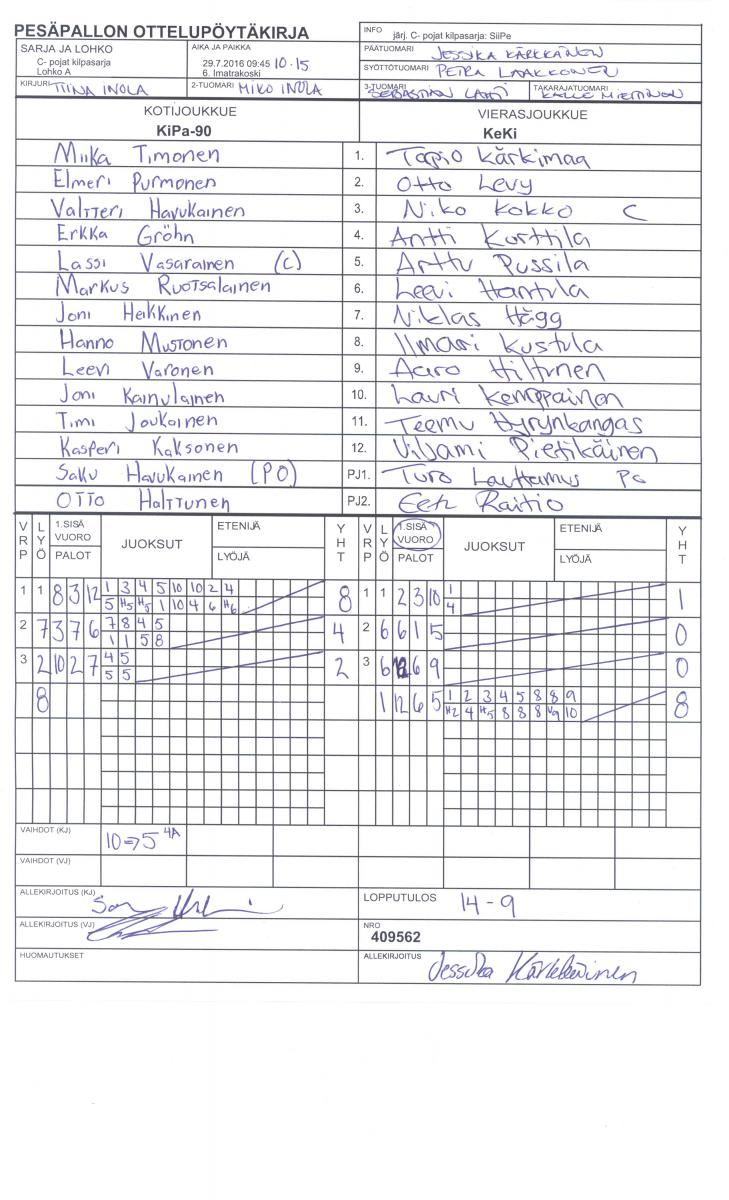 PESÄPALLON OTTELUPÖYTÄKIRJA
INFO järj. C- pojat kilpasarja: SiiPe
SARJA JA LOHKO
C- pojat kilpasarja
Lohko A
AIKA JA PAIKKA
29.7.2016 09:45 10.15
6. Imatrakoski
PÄÄTUOMARI JESSIKA KÄRKKÄINEN
SYÖTTÖTUOMARI PETRA LAAKKONEN
KIRJURI TIINA INOLA 2-TUOMARI MIKO INOLA 3-TUOMARI SEBASTIAN LAHTI TAKARAJATUOMARI KALLE MIETTINEN
KOTIJOUKKUE VIERASJOUKKUE
KiPa-90 KeKi
Miika Timonen 1. Tapio Kärkimaa
Elmeri Purmonen 2. Otto Levy
Valtteri Havukainen 3. Niko Kokko C
Erkka Gröhn 4. Antti Kurttila
Lassi Vasarainen (C) 5. Arttu Pussila
Markus Ruotsalainen 6. Leevi Hantula
Joni Heikkinen 7. Niklas Hägg
Hanno Mustonen 8. Ilmari Kustula
Leevi Varonen 9. Aaro Hiltunen
Joni Kainulainen 10. Lauri Kemppainen
Timi Joukainen 11. Teemu Hyrynkangas
Kasperi Kaksonen 12. Viljami Pietikäinen
Saku Havukainen (PO) PJ1. Turo Lauttamus
OTTO Halttunen PJ2. Raitio
VRP LYÖ 1.SISÄ VUORO PALOT JUOKSUT ETENIJÄ LYÖJÄ YHT VRP LYÖ 1.SISÄ VUORO PALOT JUOKSUT ETENIJÄ LYÖJÄ YHT
1 1 8 3 12 1 3 4 5 10 10 2 4 8 1 1 2 3 10 1 1
5 H5 H5 1 10 4 6 H6 4
2 7 3 7 6 7 8 4 5 4 2 6 6 1 5 0
1 1 5 8
3 2 10 2 7 4 5 2 3 6 6 9 0
5 5
8 1 12 6 5 1 2 3 4 5 8 8 9 8
H2 4 H5 8 8 8 V9 10
VAIHDOT (KJ) 10⇒5 4A
VAIHDOT (VJ)
ALLEKIRJOITUS (KJ) LOPPUTULOS 14-9
ALLEKIRJOITUS (VJ) NRO
409562
HUOMAUTUKSET ALLEKIRJOITUS Jessika Kärkkäinen